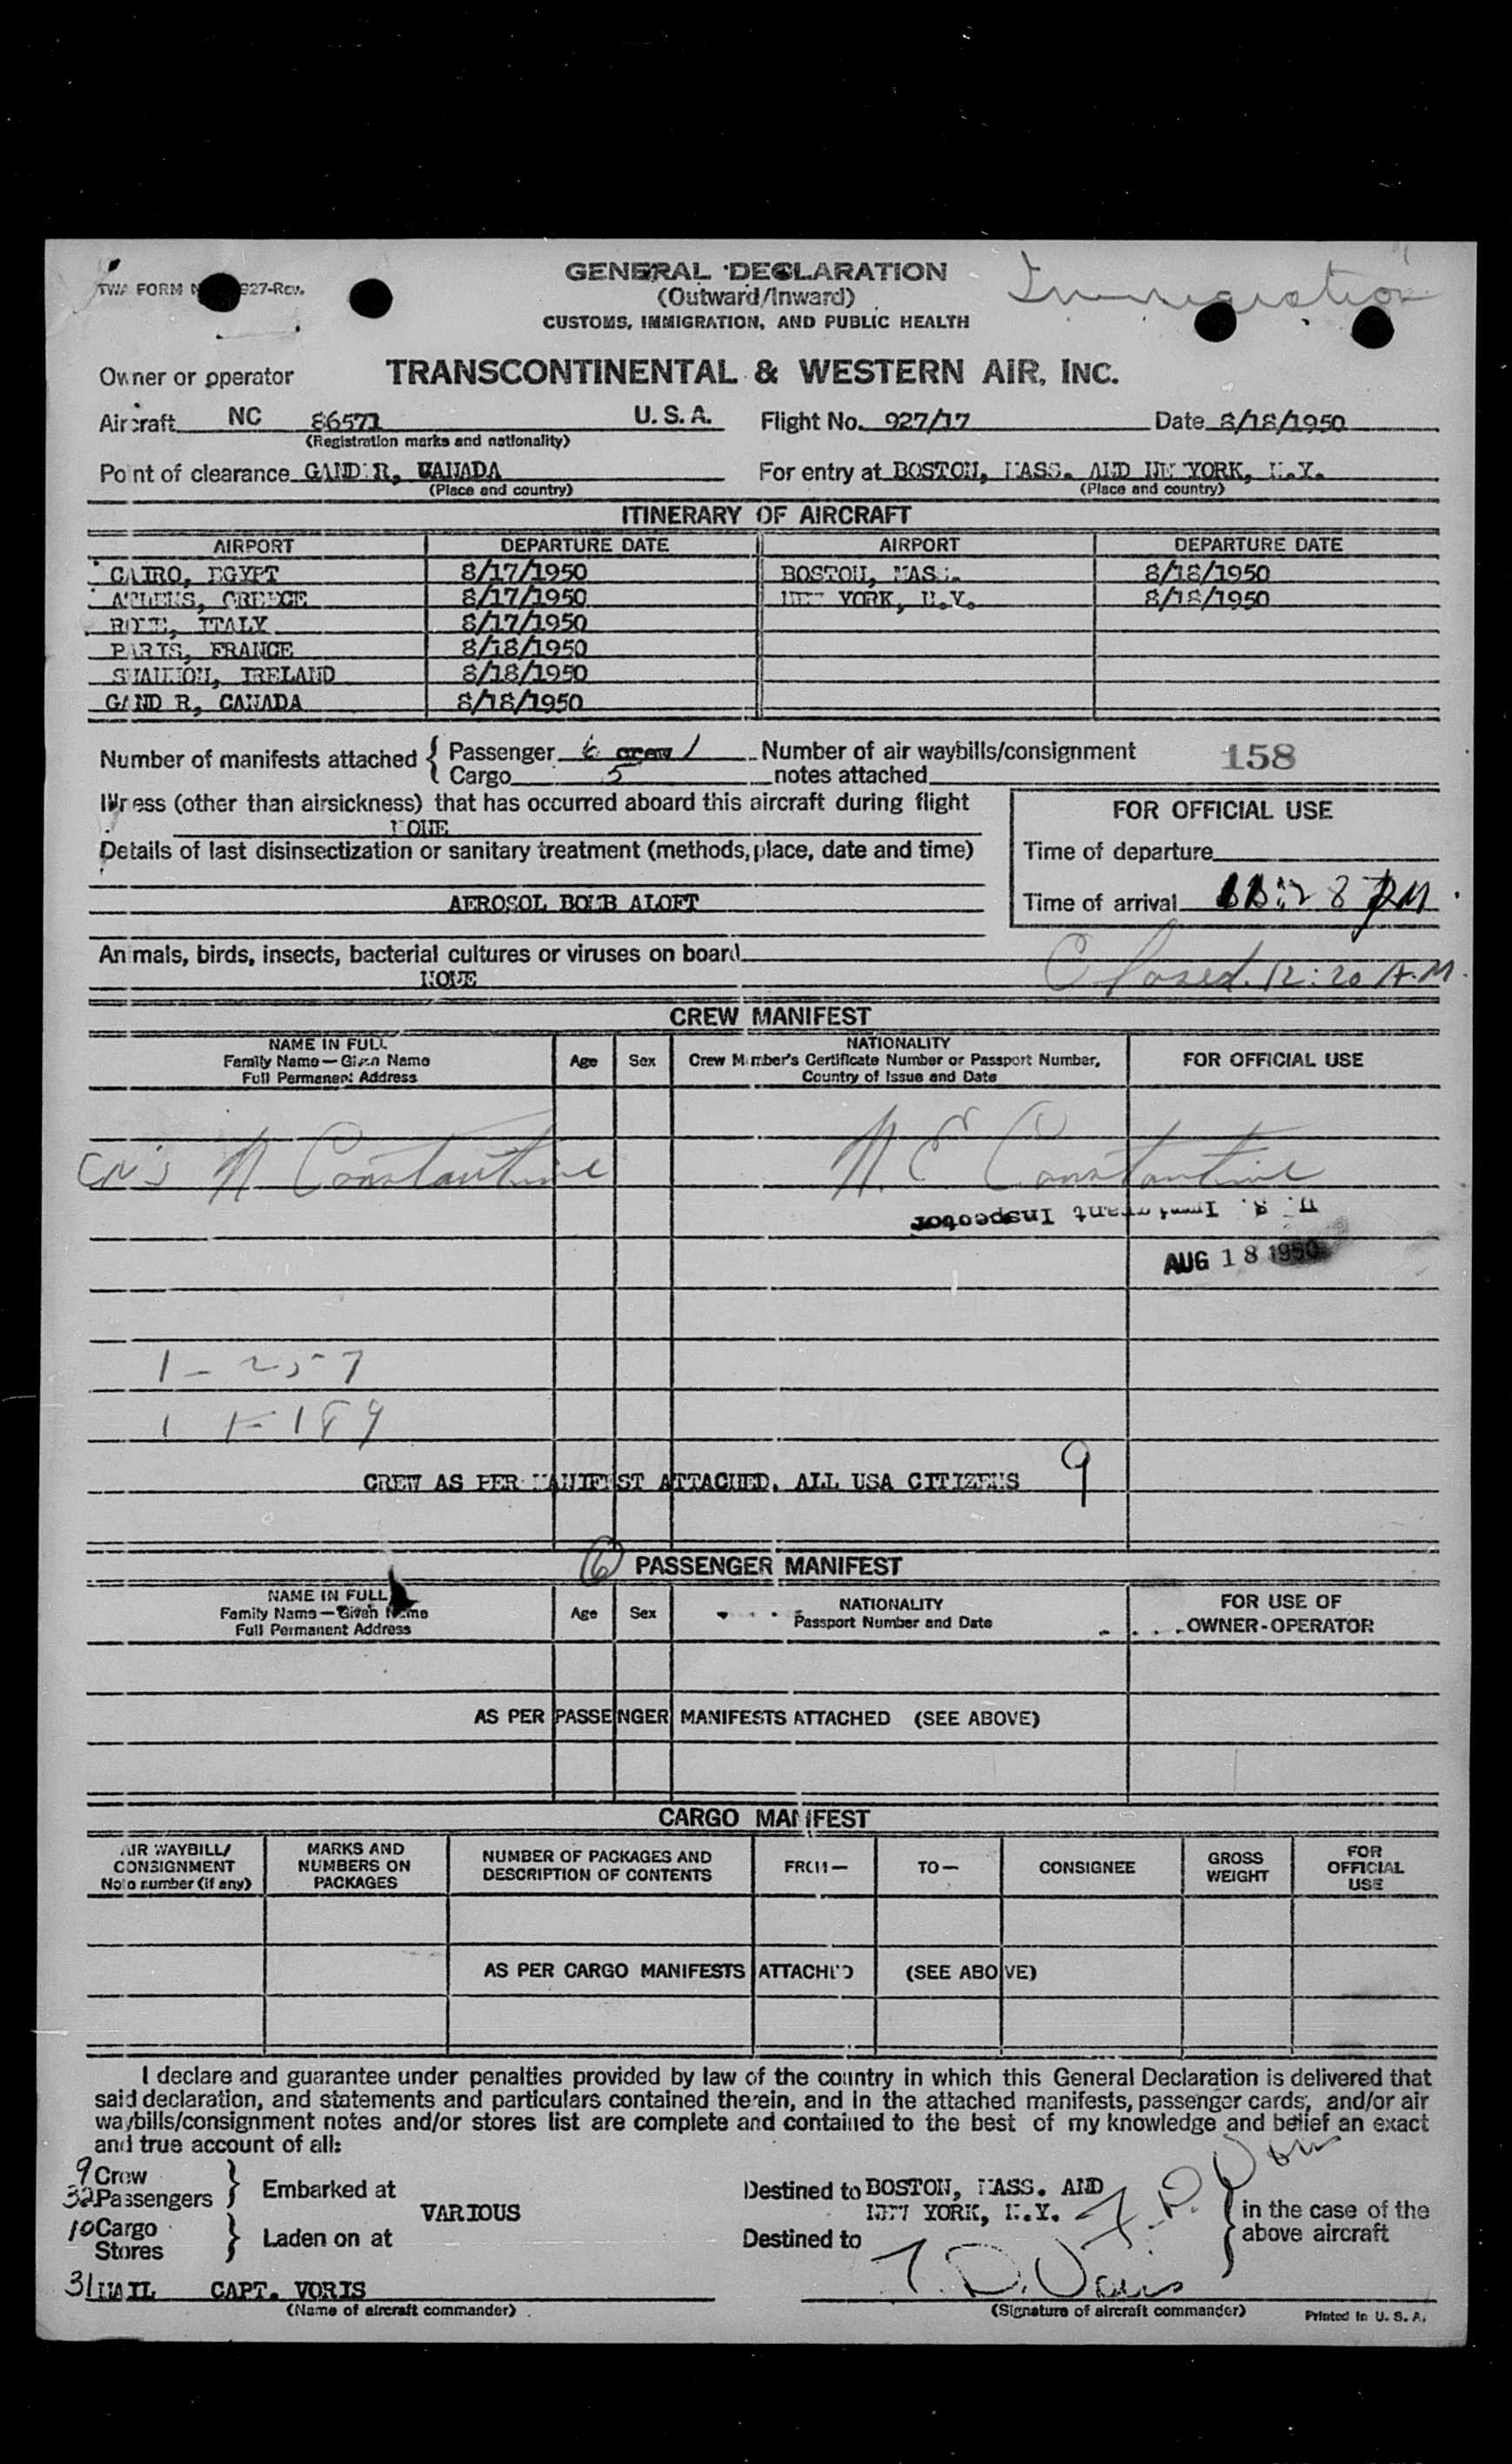 TWA FORM 927-Rev.
GENERAL DECLARATION
(Outward/Inward)
CUSTOMS, IMMIGRATION, AND PUBLIC HEALTH
Immigration
Owner or operator TRANSCONTINENTAL & WESTERN AIR, INC.
Aircraft NC 86571 U. S. A. Flight No. 927/17 Date 8/18/1950
(Registration marks and nationality)
Point of clearance GAND R, CANADA For entry at BOSTON, MASS. AND NEW YORK, N.Y.
(Place and country) (Place and country)
ITINERARY OF AIRCRAFT
AIRPORT DEPARTURE DATE AIRPORT DEPARTURE DATE
CAIRO, EGYPT 8/17/1950 BOSTON, MASS. 8/18/1950
ATHENS, GREECE 8/17/1950 NEW YORK, N.Y. 8/18/1950
ROME, ITALY 8/17/1950
PARIS, FRANCE 8/18/1950
SHANNON, IRELAND 8/18/1950
GAND R, CANADA 8/18/1950
Number of manifests attached { Passenger 6 crew 1 Number of air waybills/consignment 158
Cargo 5 notes attached
Illness (other than airsickness) that has occurred aboard this aircraft during flight
NONE
FOR OFFICIAL USE
Details of last disinsectization or sanitary treatment (methods, place, date and time)
Time of departure
AEROSOL BOMB ALOFT
Time of arrival 11:28 PM
Animals, birds, insects, bacterial cultures or viruses on board
NONE
Closed. 12:20 A.M.
CREW MANIFEST
NAME IN FULL
Family Name — Given Name
Full Permanent Address
Age Sex
NATIONALITY
Crew Member's Certificate Number or Passport Number,
Country of Issue and Date
FOR OFFICIAL USE
N Constantine N. E. Constantine
U. S. Immigrant Inspector
AUG 18 1950
1 - 257
1 I-189
CREW AS PER MANIFEST ATTACHED. ALL USA CITIZENS 9
6 PASSENGER MANIFEST
NAME IN FULL
Family Name — Given Name
Full Permanent Address
Age Sex
NATIONALITY
Passport Number and Date
FOR USE OF
OWNER-OPERATOR
AS PER PASSENGER MANIFESTS ATTACHED (SEE ABOVE)
CARGO MANIFEST
AIR WAYBILL/
CONSIGNMENT
Note number (if any)
MARKS AND
NUMBERS ON
PACKAGES
NUMBER OF PACKAGES AND
DESCRIPTION OF CONTENTS
FROM —
TO —
CONSIGNEE
GROSS
WEIGHT
FOR
OFFICIAL
USE
AS PER CARGO MANIFESTS ATTACHED (SEE ABOVE)
I declare and guarantee under penalties provided by law of the country in which this General Declaration is delivered that
said declaration, and statements and particulars contained therein, and in the attached manifests, passenger cards, and/or air
waybills/consignment notes and/or stores list are complete and contained to the best of my knowledge and belief an exact
and true account of all:
9 Crew
32 Passengers } Embarked at
VARIOUS
10 Cargo
Stores } Laden on at
Destined to BOSTON, MASS. AND
NEW YORK, N.Y.
Destined to
} in the case of the
above aircraft
T. D. Voris
31 MAIL CAPT. VORIS T. D. Voris
(Name of aircraft commander) (Signature of aircraft commander) Printed in U. S. A.